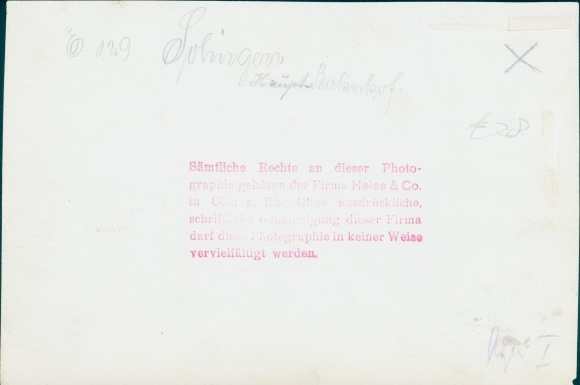 129 Solingen
Haupt-Bahnhof.
€ 28
Sämtliche Rechte an dieser Photo-
graphie gehören der Firma Heiss & Co.
in Cöln a. Rh. Ohne ausdrückliche,
schriftliche Genehmigung dieser Firma
darf diese Photographie in keiner Weise
vervielfältigt werden.
I